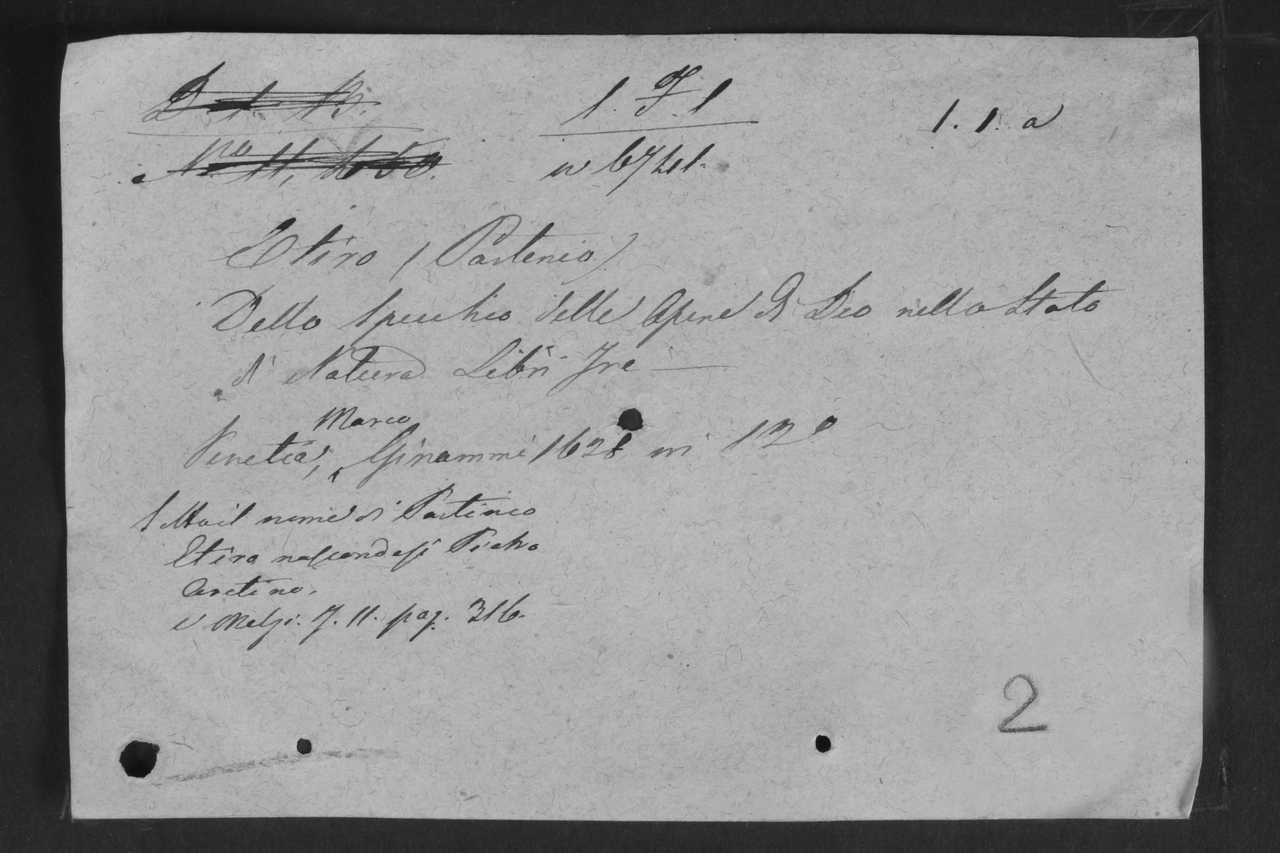 D. 1. B.
1. F. 1
1. 1. a
No 11,
6741.
Etiro (Partenio)
Dello Specchio delle Opere di Dio nello Stato
di Natura Libri Tre —
Marco
Venetia, Ginammi 1628 in 12o
Sotto il nome di Partenio
Etiro nascondesi Pietro
Aretino.
v. Melzi. T. 11. pag. 316.
2